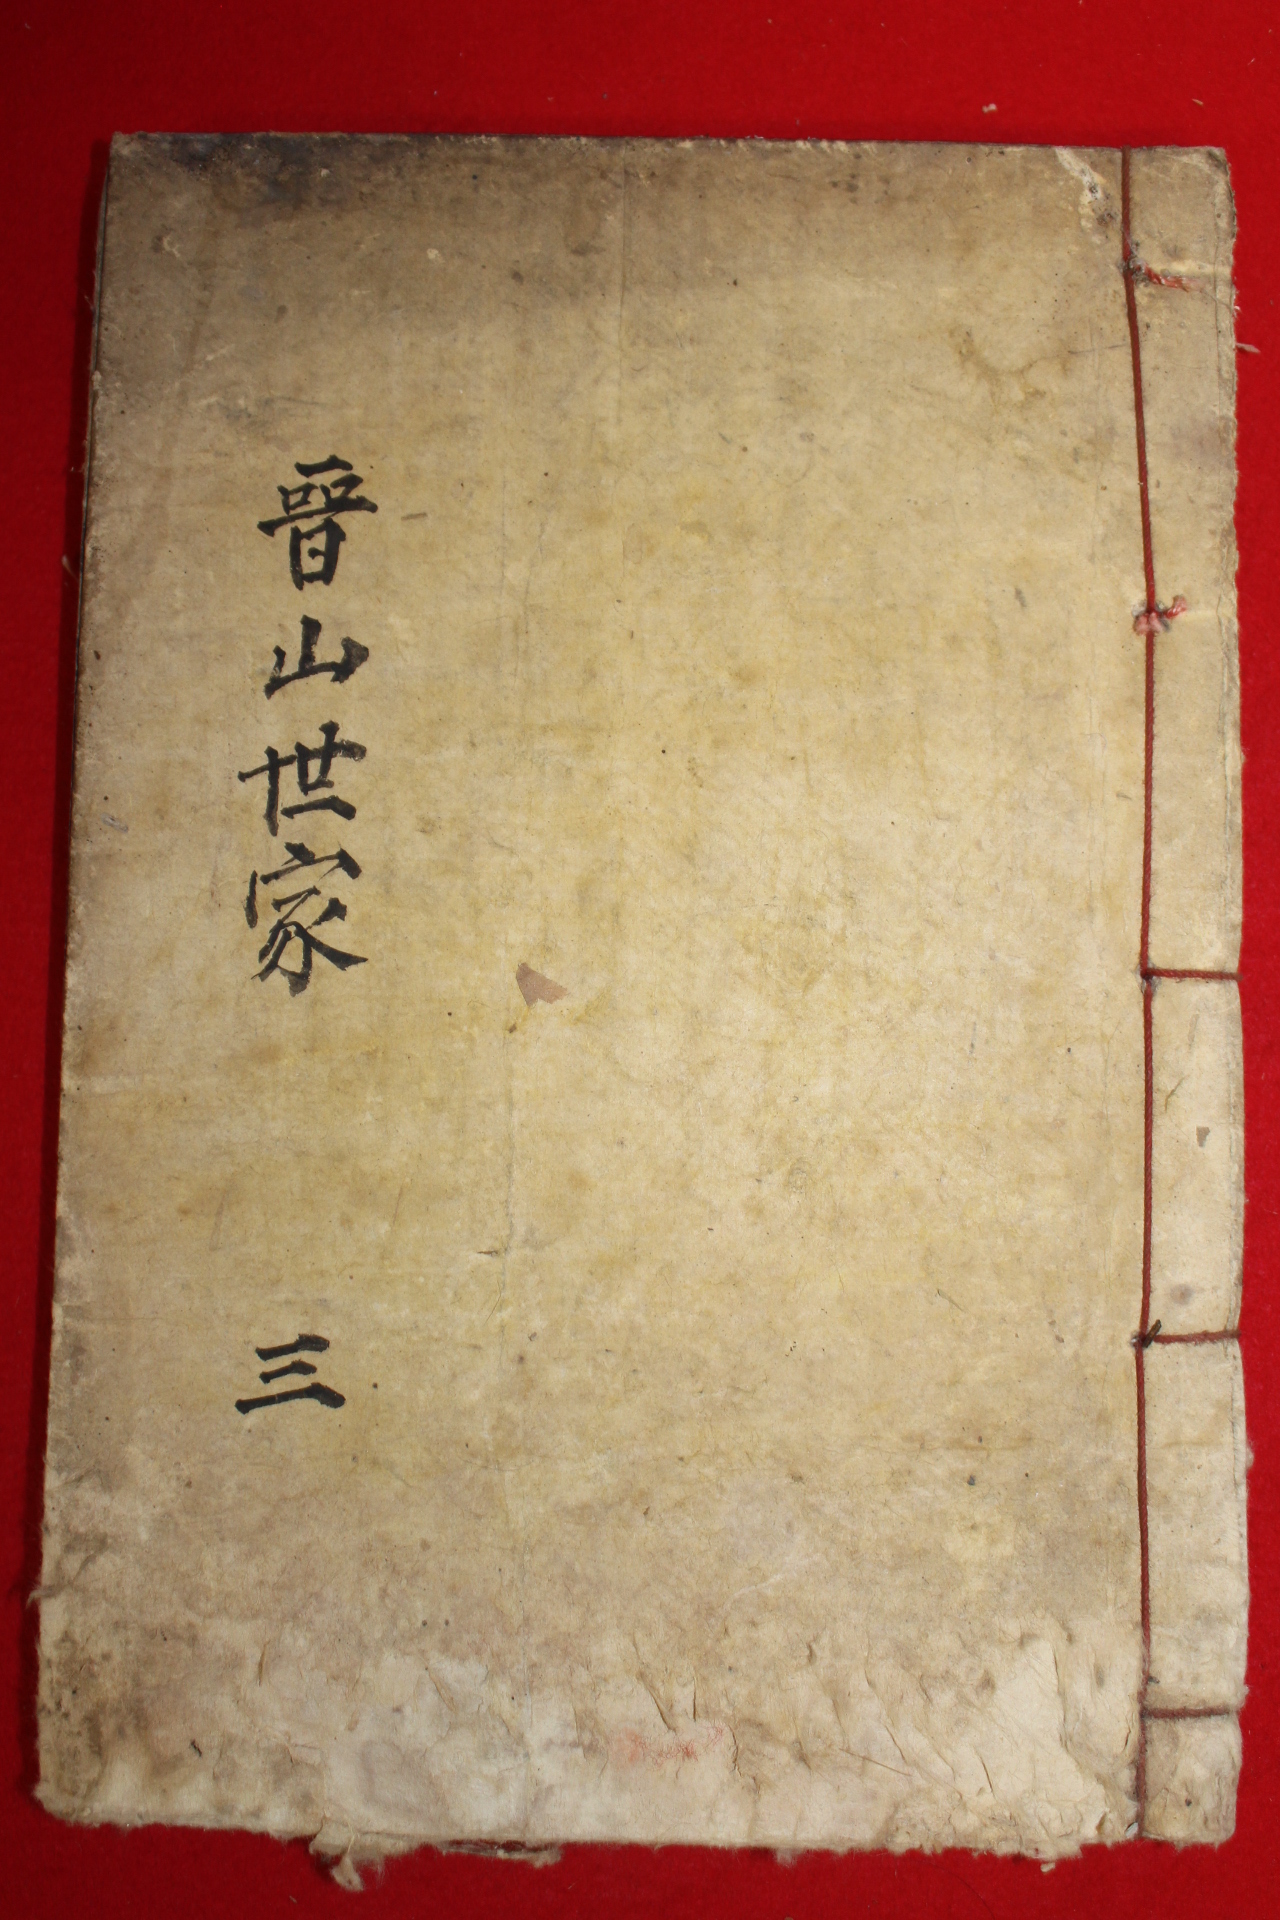 晉山世家 三